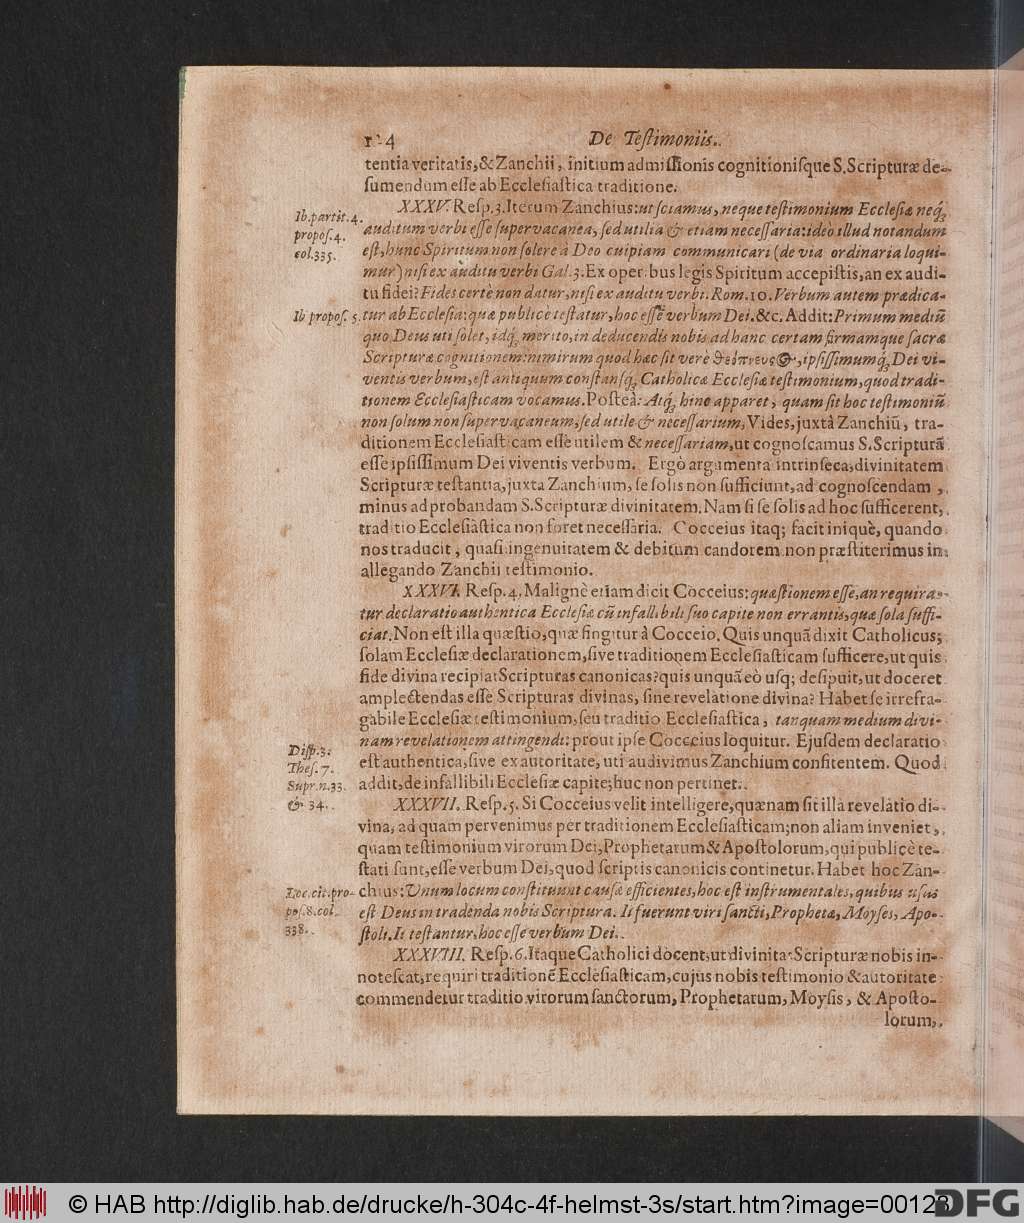 De Testimoniis.
tentia veritatis, & Zanchii, initium admissionis cognitionisque S. Scripturæ de-
sumendum esse ab Ecclesiastica traditione.
XXXV. Resp. 3. Iterum Zanchius: ut sciamus, neque testimonium Ecclesiæ neq;
Ib. partit. 4.
auditum verbi esse supervacanea, sed utilia & etiam necessaria: ideò illud notandum
propos. 4.
est, hunc Spiritum non solere à Deo cuipiam communicari (de via ordinaria loqui-
col. 335.
mur) nisi ex auditu verbi Gal. 3. Ex operibus legis Spiritum accepistis, an ex audi-
tu fidei? Fides certè non datur, nisi ex auditu verbi. Rom. 10. Verbum autem prædica-
Ib propos. 5.
tur ab Ecclesia: quæ publicè testatur, hoc esse verbum Dei. &c. Addit: Primum mediũ
quo Deus uti solet, idq; merito, in deducendis nobis ad hanc certam firmamque sacræ
Scripturæ cognitionem: nimirum quod hæc sit verè θεόπνευς, ipsissimumq; Dei vi-
ventis verbum, est antiquum constansq; Catholicæ Ecclesiæ testimonium, quod tradi-
tionem Ecclesiasticam vocamus. Posteà: Atq; hinc apparet, quam sit hoc testimoniũ
non solum non supervacaneum, sed utile & necessarium, Vides, juxtà Zanchiũ, tra-
ditionem Ecclesiasticam esse utilem & necessariam, ut cognoscamus S. Scripturã
esse ipsissimum Dei viventis verbum. Ergò argumenta intrinseca, divinitatem
Scripturæ testantia, juxta Zanchium, se solis non sufficiunt, ad cognoscendam,
minus ad probandam S. Scripturæ divinitatem. Nam si se solis ad hoc sufficerent,
traditio Ecclesiàstica non foret necessaria. Cocceius itaq; facit iniquè, quando
nos traducit, quasi ingenuitatem & debitum candorem non præstiterimus in
allegando Zanchii testimonio.
XXXVI. Resp. 4. Malignè etiam dicit Cocceius: quæstionem esse, an requira-
tur declaratio authentica Ecclesiæ cũ infallibili suo capite non errantis, quæ sola suffi-
ciat. Non est illa quæstio, quæ fingitur à Cocceio. Quis unquã dixit Catholicus;
solam Ecclesiæ declarationem, sive traditionem Ecclesiasticam sufficere, ut quis
fide divina recipiat Scripturas canonicas? quis unquã eò usq; desipuit, ut doceret
amplectendas esse Scripturas divinas, sine revelatione divina? Habet se irrefra-
gabile Ecclesiæ testimonium, seu traditio Ecclesiastica, tanquam medium divi-
nam revelationem attingendi: prout ipse Cocceius loquitur. Ejusdem declaratio
Disp. 3.
Thes. 7.
est authentica, sive ex autoritate, uti audivimus Zanchium confitentem. Quod
Supr. n. 33.
addit, de infallibili Ecclesiæ capite; huc non pertinet.
& 34.
XXXVII. Resp. 5. Si Cocceius velit intelligere, quænam sit illa revelatio di-
vina, ad quam pervenimus per traditionem Ecclesiasticam; non aliam inveniet,
quam testimonium virorum Dei, Prophetarum & Apostolorum, qui publicè te-
stati sunt, esse verbum Dei, quod scriptis canonicis continetur. Habet hoc Zan-
Loc. cit. pro-
chius: Unum locum constituunt causæ efficientes, hoc est instrumentales, quibus usus
pos. 8. col.
est Deus in tradenda nobis Scriptura. Ii fuerunt viri sancti, Prophetæ, Moyses, Apo-
338.
stoli. Ii testantur, hoc esse verbum Dei.
XXXVIII. Resp. 6. Itaque Catholici docent, ut divinitas Scripturæ nobis in-
notescat, requiri traditionẽ Ecclesiasticam, cujus nobis testimonio & autoritate
commendetur traditio virorum sanctorum, Prophetarum, Moysis, & Aposto-
lorum,
© HAB http://diglib.hab.de/drucke/h-304c-4f-helmst-3s/start.htm?image=00128
DFG